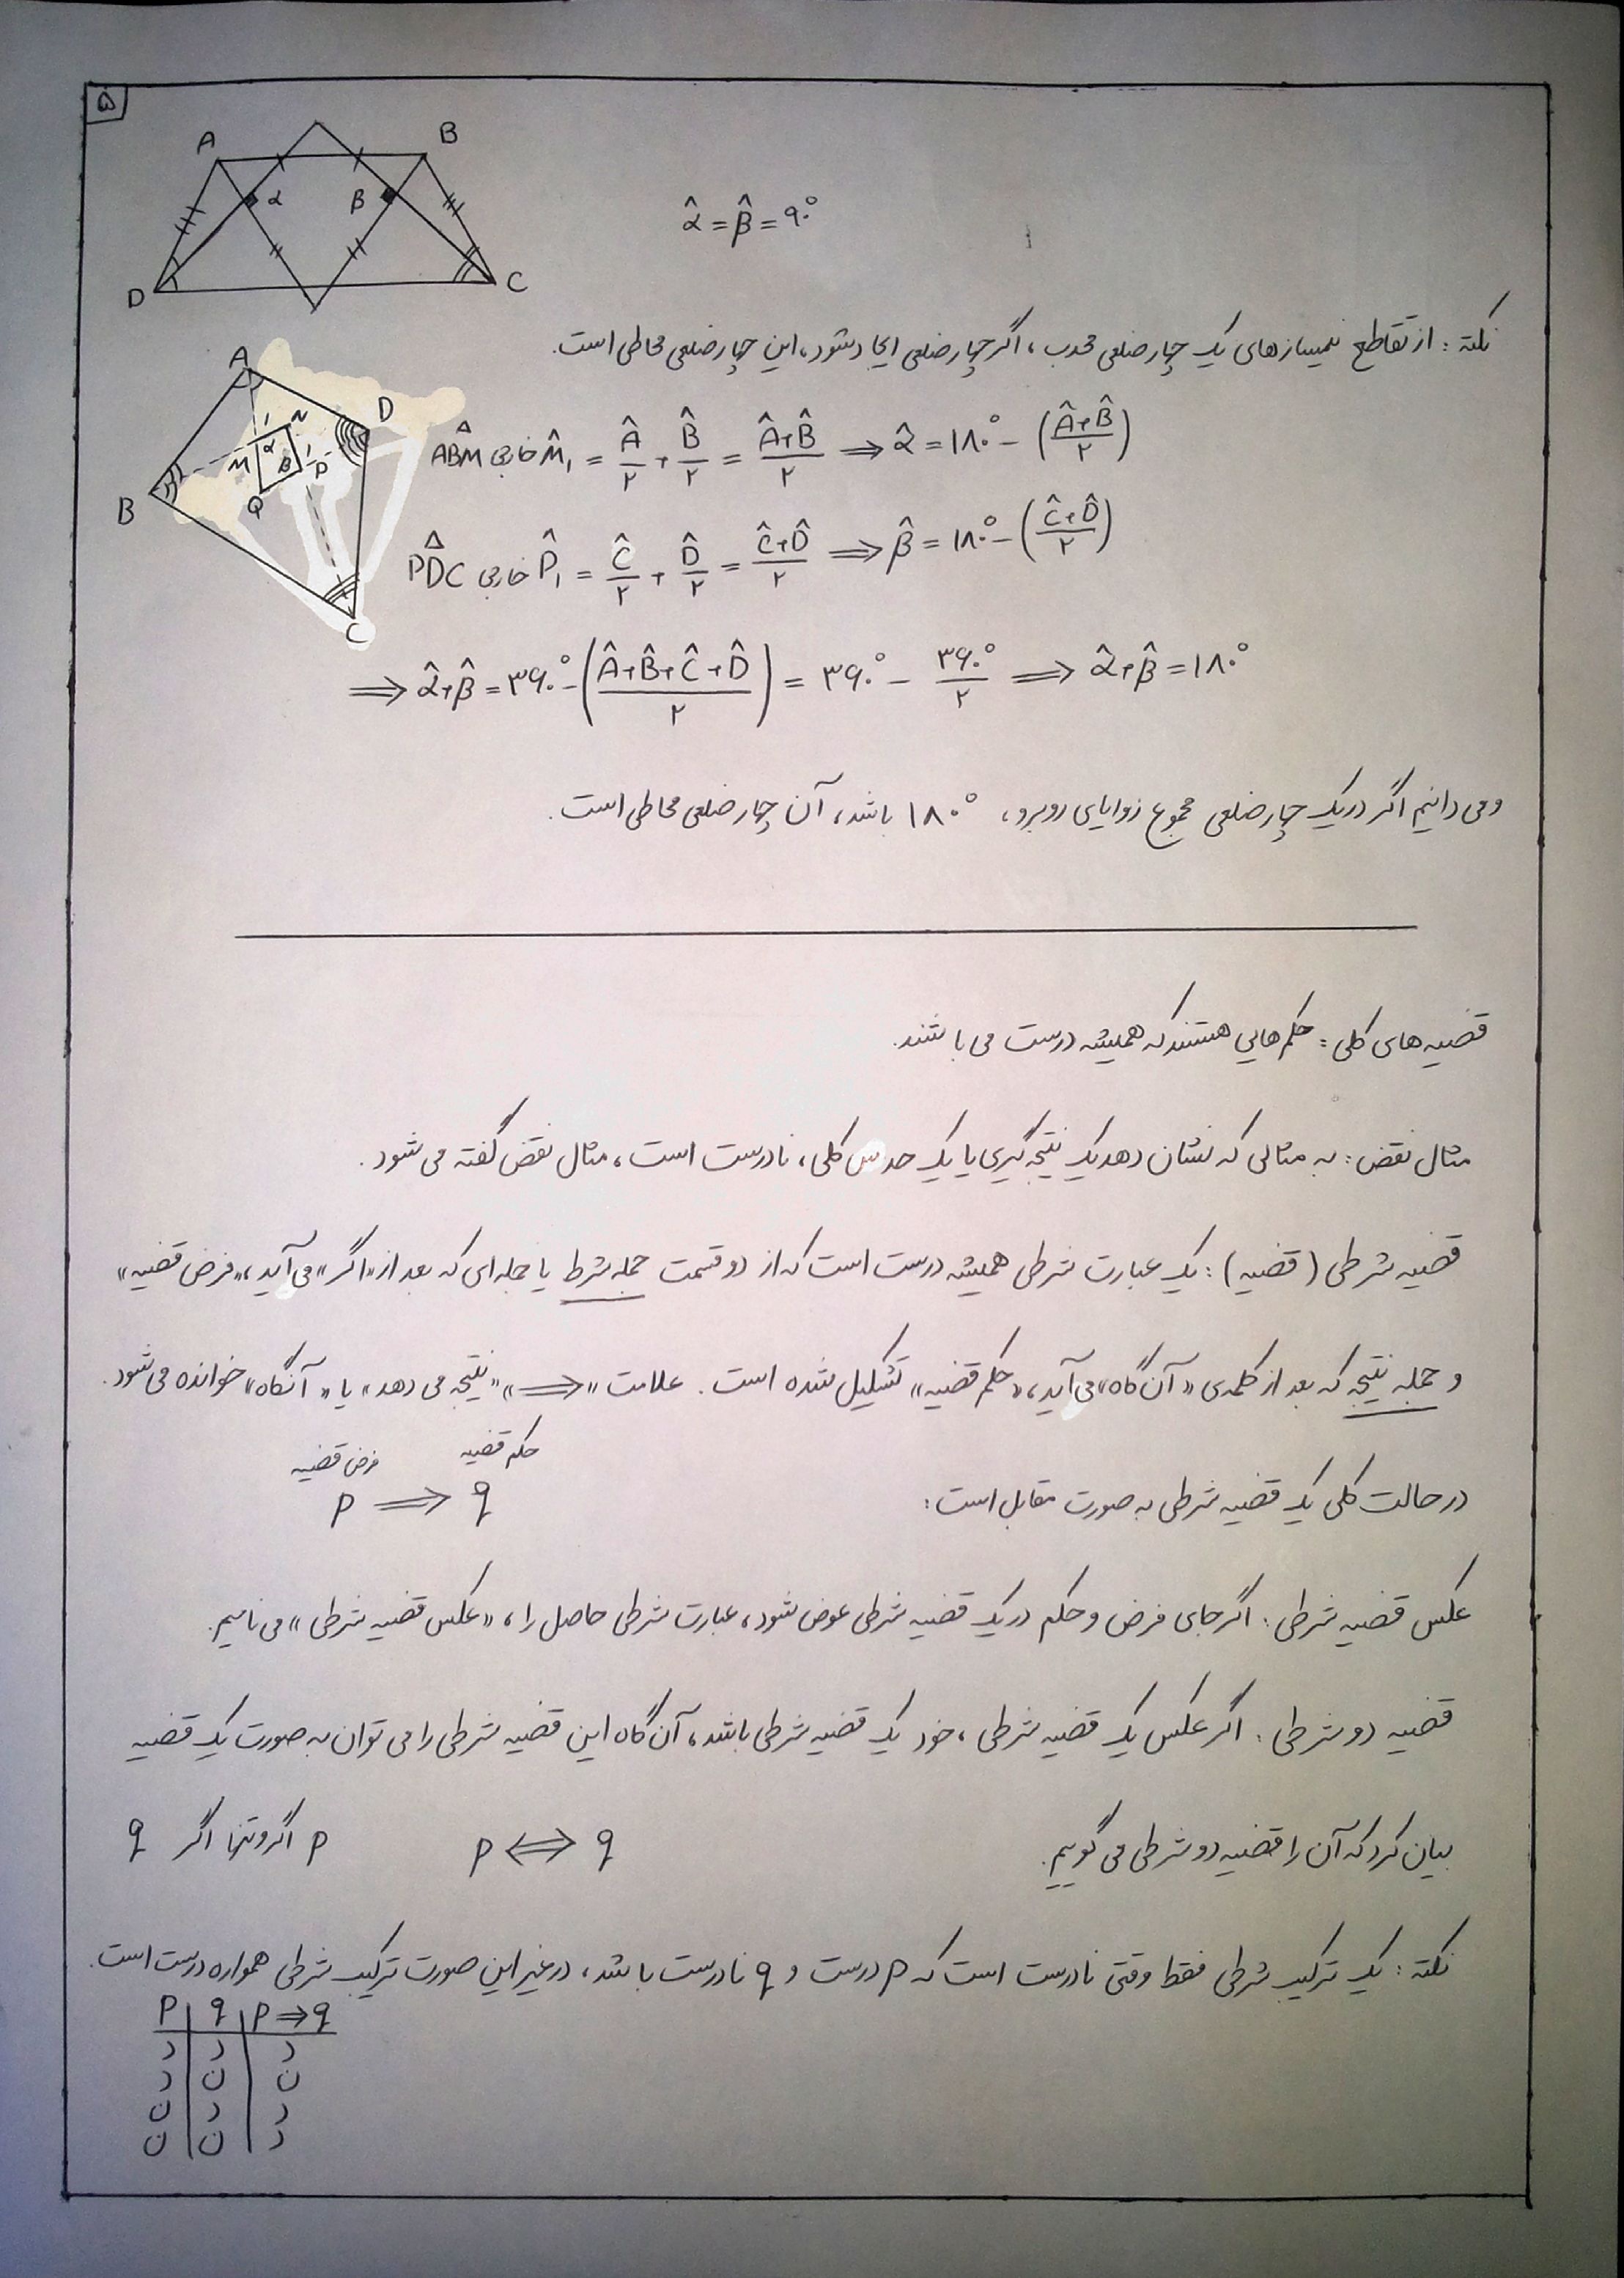 ۵
A B
α β
D C
α̂ = β̂ = ۹۰°
نکته : از تقاطع نیمسازهای یک چهارضلعی محدب ، اگر چهارضلعی ایجاد شود ، این چهارضلعی محاطی است.
A
B
C
D
M N P Q
α β
1 1
ABM خارجی M̂₁ = Â/۲ + B̂/۲ = (Â+B̂)/۲ ⟹ α̂ = ۱۸۰° - ((Â+B̂)/۲)
PDC خارجی P̂₁ = Ĉ/۲ + D̂/۲ = (Ĉ+D̂)/۲ ⟹ β̂ = ۱۸۰° - ((Ĉ+D̂)/۲)
⟹ α̂+β̂ = ۳۶۰° - ((Â+B̂+Ĉ+D̂)/۲) = ۳۶۰° - ۳۶۰°/۲ ⟹ α̂+β̂ = ۱۸۰°
و می دانیم اگر در یک چهارضلعی مجموع زوایای روبرو ، ۱۸۰° باشد ، آن چهارضلعی محاطی است.
قضیه های کلی : حکم هایی هستند که همیشه درست می باشند.
مثال نقض : به مثالی که نشان دهد یک نتیجه گیری یا یک حدس کلی ، نادرست است ، مثال نقض گفته می شود .
قضیه شرطی ( قضیه ) : یک عبارت شرطی همیشه درست است که از دو قسمت جمله شرط یا جمله ای که بعد از «اگر» می آید ، «فرض قضیه»
و جمله نتیجه که بعد از کلمه ی «آن گاه» می آید ، «حکم قضیه» تشکیل شده است . علامت «⟹» «نتیجه می دهد» یا «آنگاه» خوانده می شود .
فرض قضیه حکم قضیه
در حالت کلی یک قضیه شرطی به صورت مقابل است : p ⟹ q
عکس قضیه شرطی : اگر جای فرض و حکم در یک قضیه شرطی عوض شود ، عبارت شرطی حاصل را ، «عکس قضیه شرطی» می نامیم.
قضیه دو شرطی : اگر عکس یک قضیه شرطی ، خود یک قضیه شرطی باشد ، آن گاه این قضیه شرطی را می توان به صورت یک قضیه
بیان کرد که آن را قضیه دو شرطی می گوییم. p ⟺ q p اگر و تنها اگر q
نکته : یک ترکیب شرطی فقط وقتی نادرست است که p درست و q نادرست باشد ، در غیر این صورت ترکیب شرطی همواره درست است.
p | q | p ⇒ q
د | د | د
د | ن | ن
ن | د | د
ن | ن | د